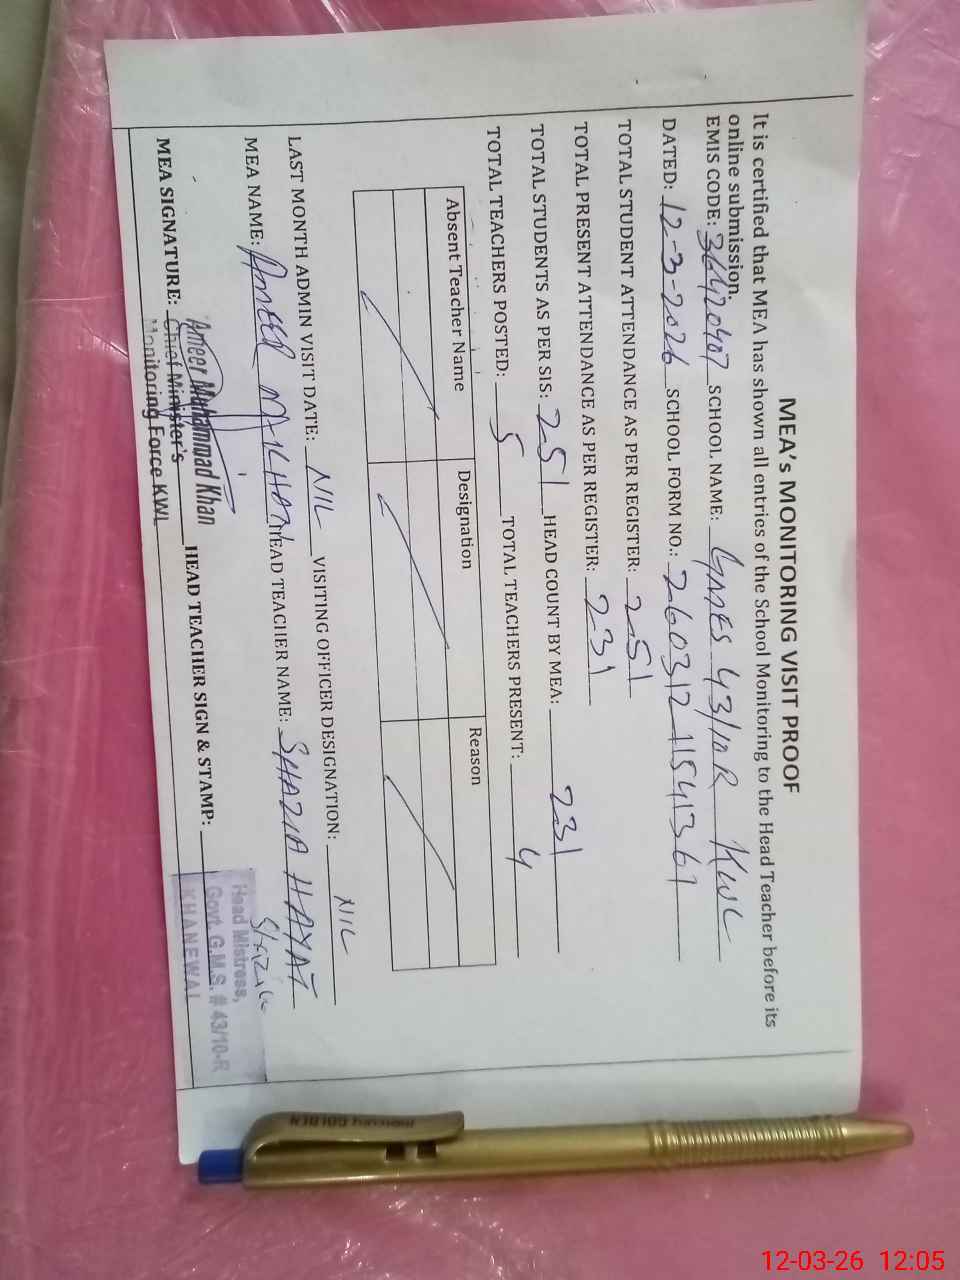 MEA's MONITORING VISIT PROOF
It is certified that MEA has shown all entries of the School Monitoring to the Head Teacher before its
online submission.
EMIS CODE: SCHOOL NAME: 43/10R KWL
DATED: 12-3-2026 SCHOOL FORM NO.:
TOTAL STUDENT ATTENDANCE AS PER REGISTER: 251
TOTAL PRESENT ATTENDANCE AS PER REGISTER: 231
TOTAL STUDENTS AS PER SIS: 251 HEAD COUNT BY MEA: 231
TOTAL TEACHERS POSTED: 5 TOTAL TEACHERS PRESENT: 4
Absent Teacher Name Designation Reason
LAST MONTH ADMIN VISIT DATE: NIL VISITING OFFICER DESIGNATION: NIL
MEA NAME: AMEER M. KHAN HEAD TEACHER NAME: SHAZIA HAYAT
MEA SIGNATURE: HEAD TEACHER SIGN & STAMP:
Ameer Muhammad Khan
Chief Minister's
Monitoring Force KWL
Head Mistress,
Govt. G.M.S. # 43/10-R
KHANEWAL
mercury GOLDEN
12-03-26 12:05